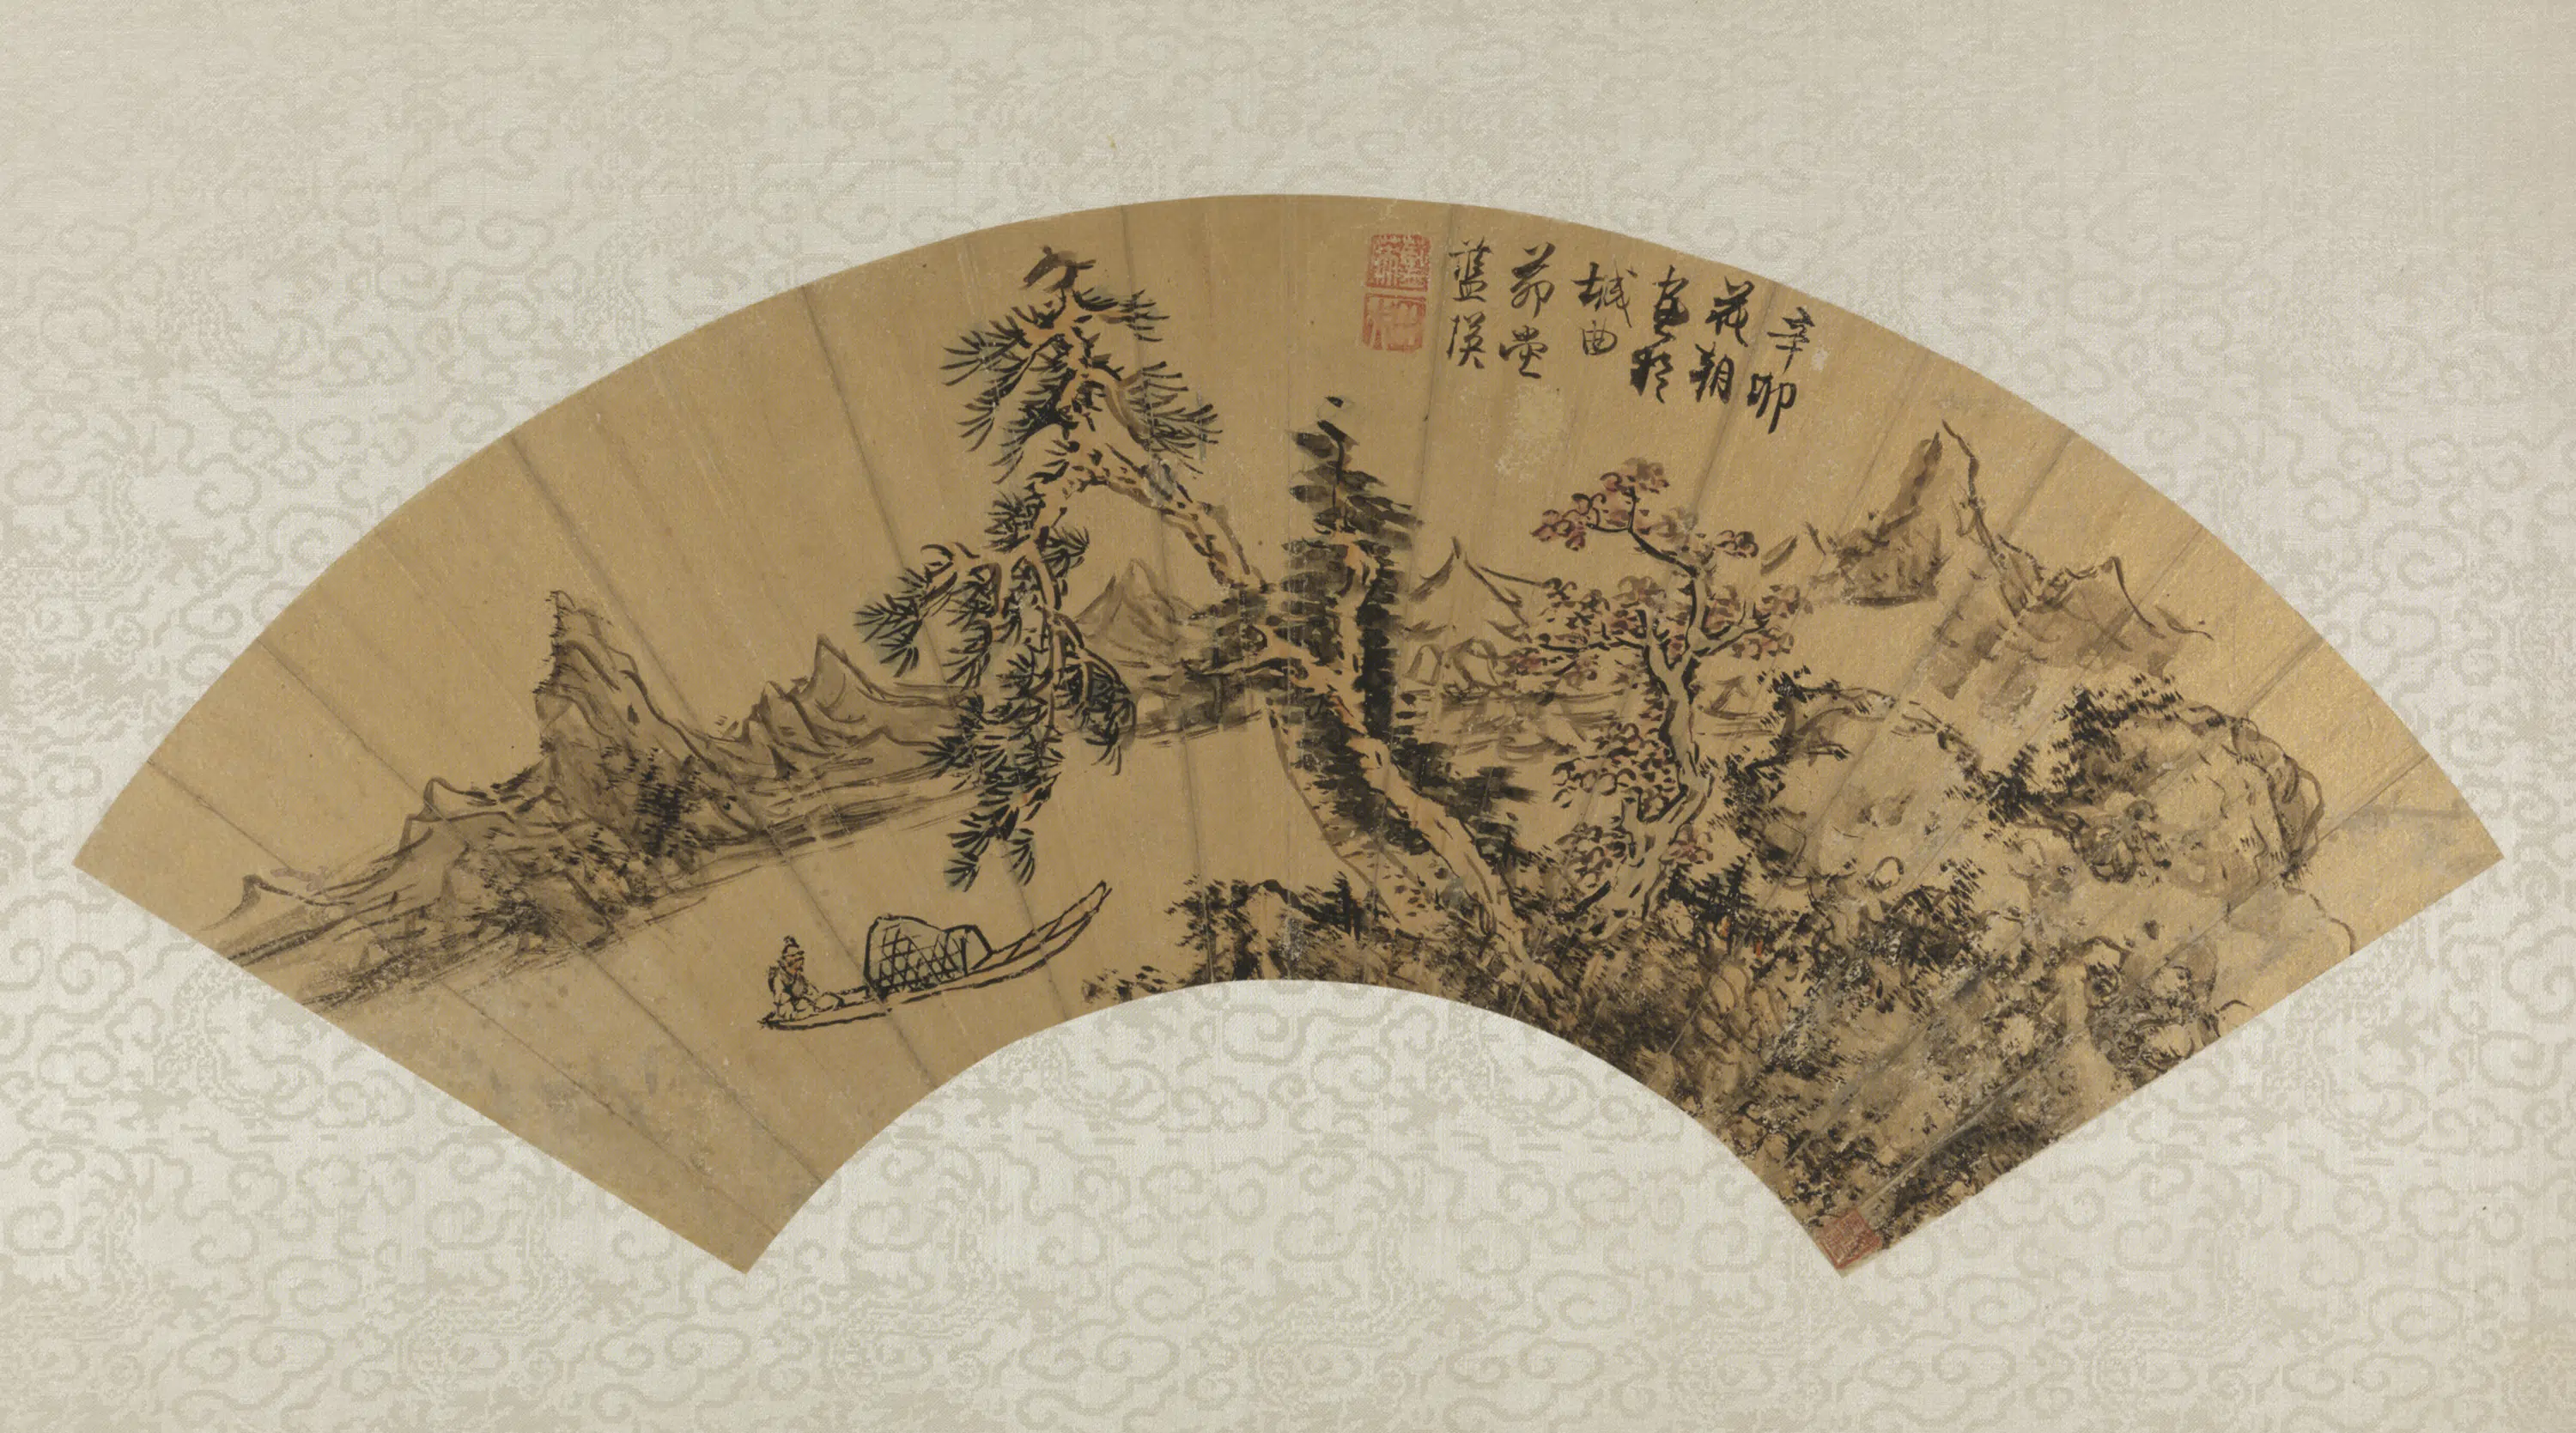 辛卯
花朝
畫於
城曲
茆堂
藍瑛